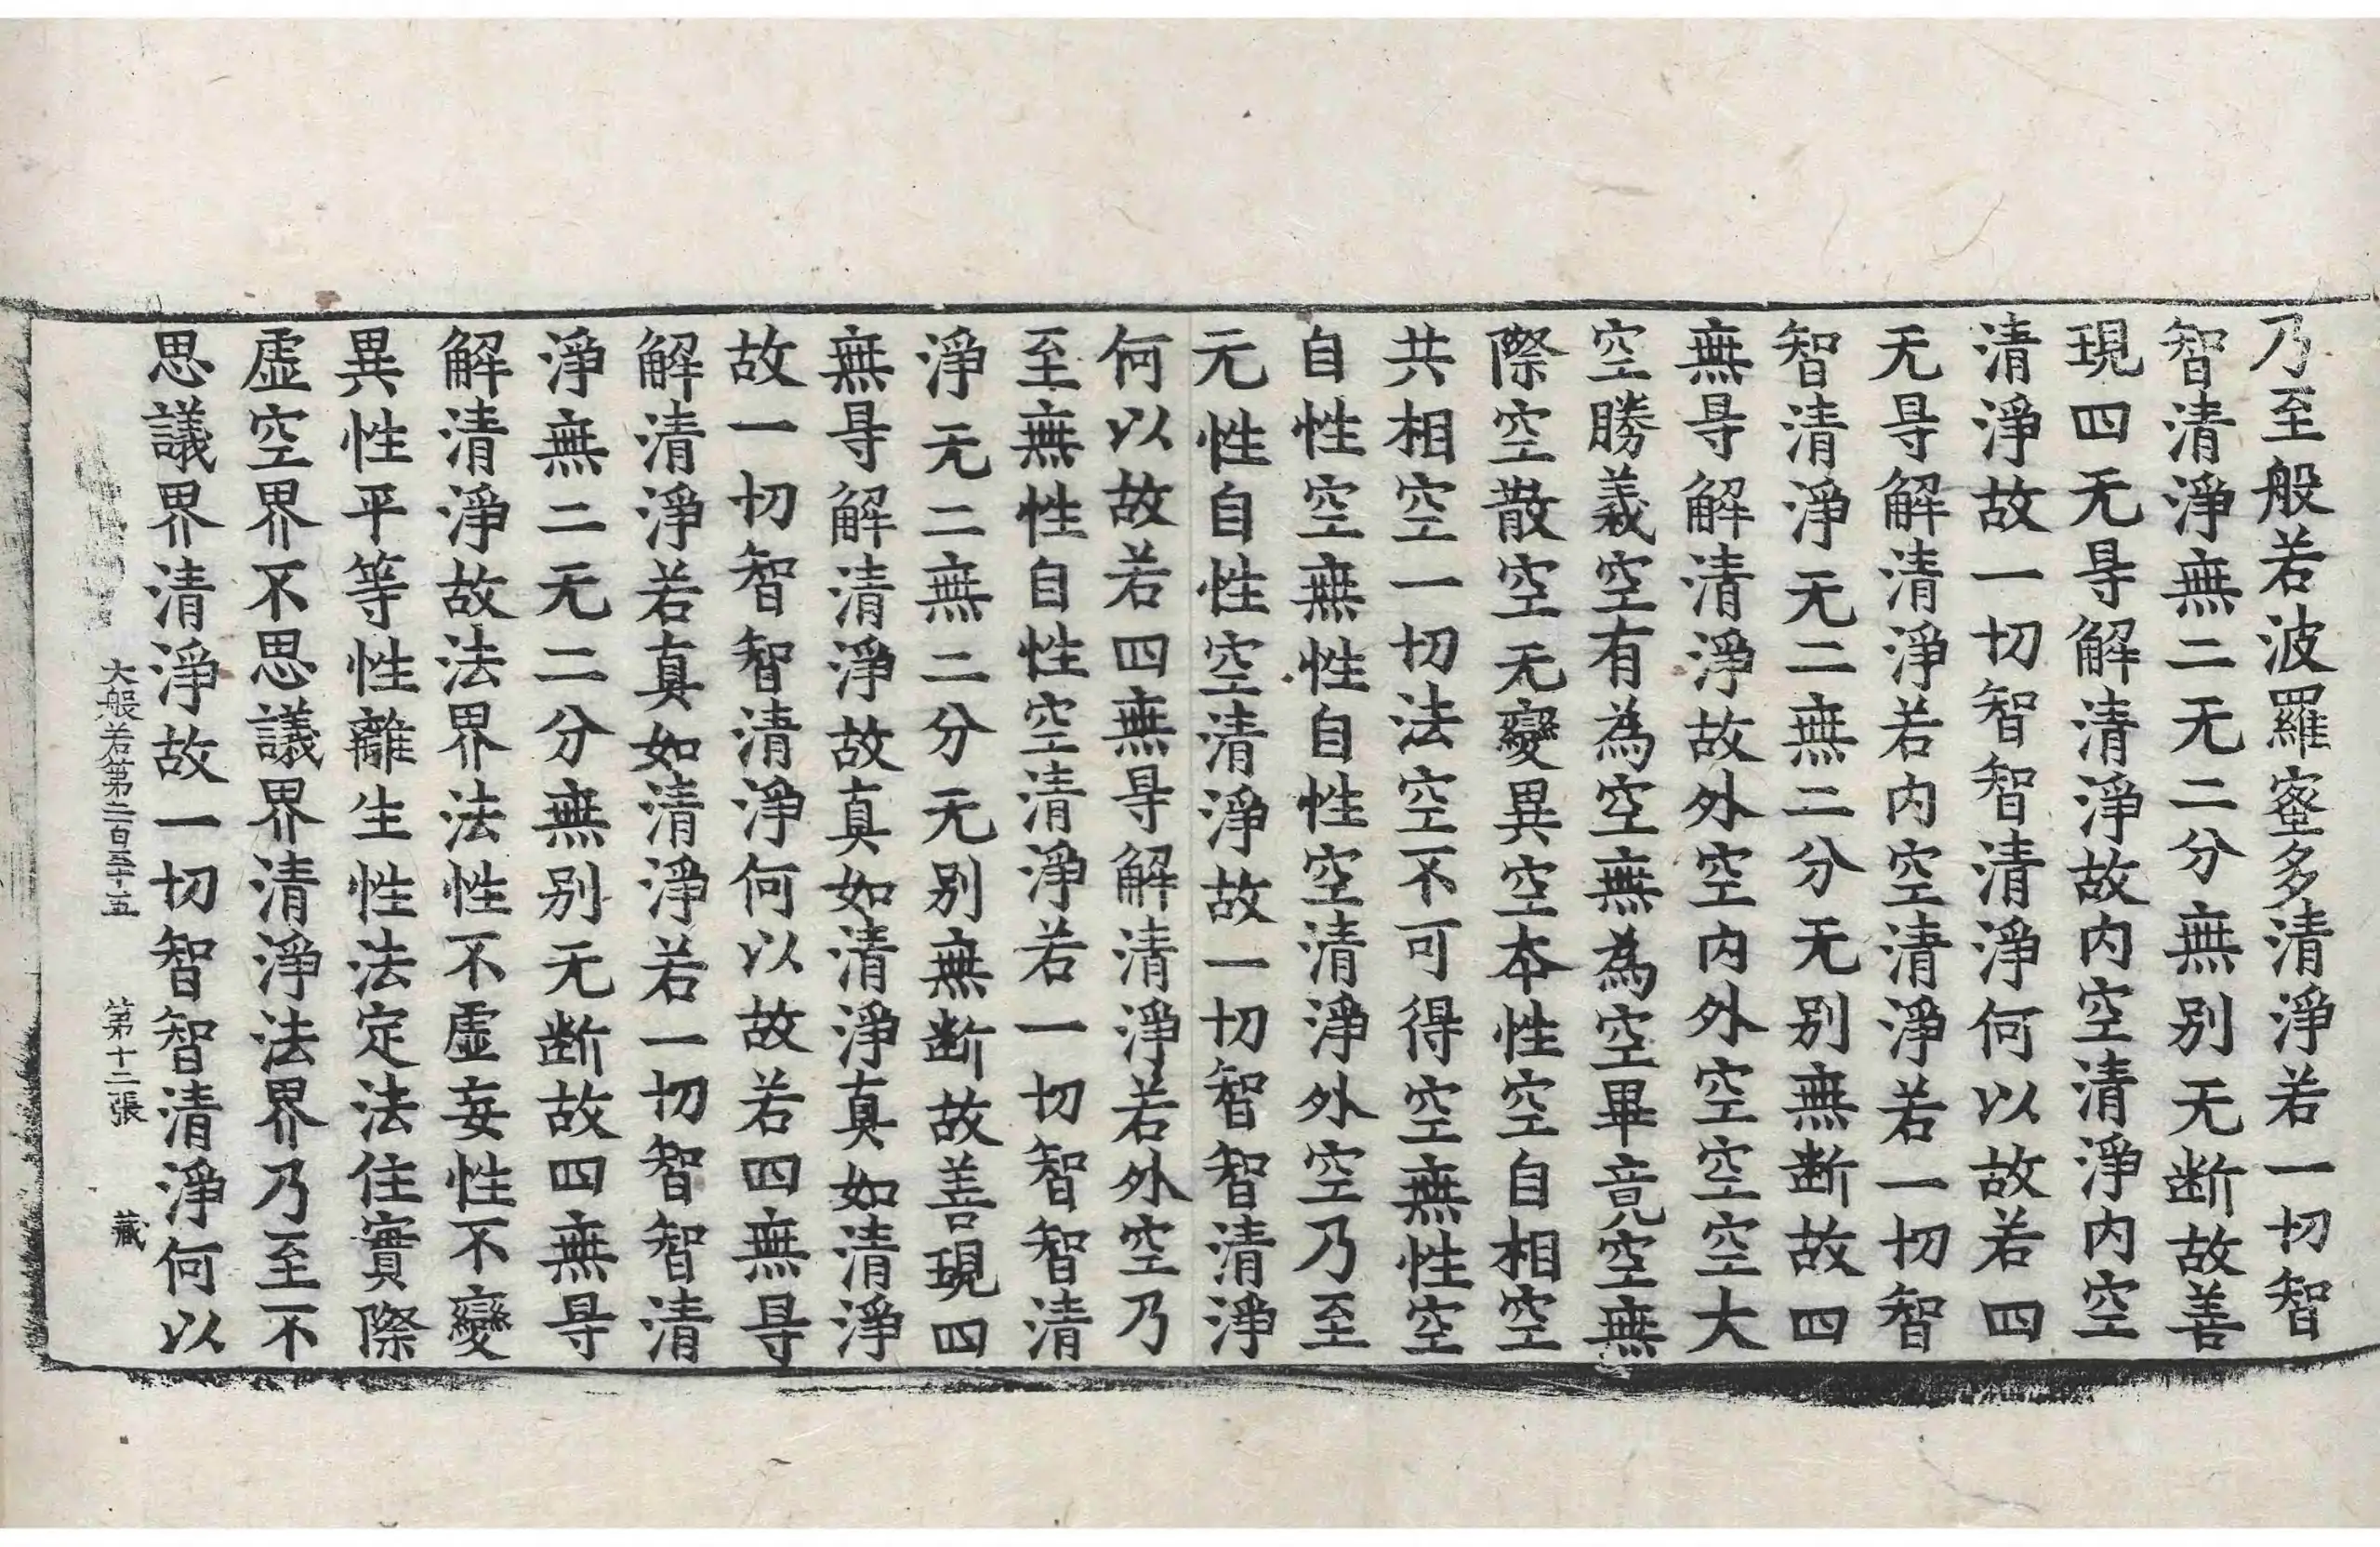 乃至般若波羅蜜多清淨若一切智
智清淨無二无二分無別无断故善
現四无㝵解清淨故内空清淨内空
清淨故一切智智清淨何以故若四
无㝵解清淨若内空清淨若一切智
智清淨无二無二分无別無断故四
無㝵解清淨故外空内外空空空大
空勝義空有為空無為空畢竟空無
際空散空无變異空本性空自相空
共相空一切法空不可得空無性空
自性空無性自性空清淨外空乃至
元性自性空清淨故一切智智清淨
何以故若四無㝵解清淨若外空乃
至無性自性空清淨若一切智智清
淨无二無二分无別無断故善現四
無㝵解清淨故真如清淨真如清淨
故一切智智清淨何以故若四無㝵
解清淨若真如清淨若一切智智清
淨無二无二分無別无断故四無㝵
解清淨故法界法性不虛妄性不變
異性平等性離生性法定法住實際
虛空界不思議界清淨法界乃至不
思議界清淨故一切智智清淨何以
大般若第二百五十五 第十二張 藏